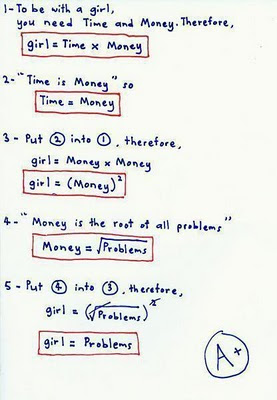 1-To be with a girl,
you need Time and Money. Therefore,
girl = Time × Money
2-"Time is Money" so
Time = Money
3 - Put ② into ①, therefore,
girl = Money × Money
girl = (Money)²
4-"Money is the root of all problems"
Money = √Problems
5 - Put ④ into ③, therefore,
girl = (√Problems)²
girl = Problems
A+